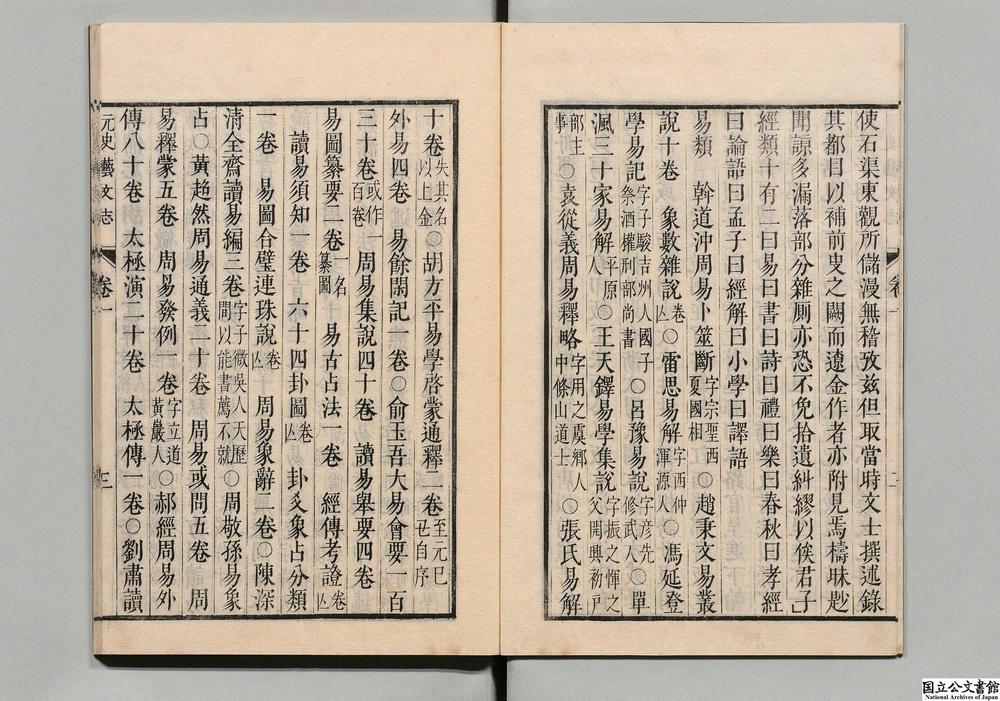 使石渠東觀所儲漫無稽攷茲但取當時文士撰述錄
其都目以補前史之闕而遼金作者亦附見焉檮昧尟
聞諒多漏落部分雜厠亦恐不免拾遺糾繆以俟君子
經類十有二曰易曰書曰詩曰禮曰樂曰春秋曰孝經
曰論語曰孟子曰經解曰小學曰譯語
易類　斡道沖周易卜筮斷字宗聖西夏國相○趙秉文易叢
說十卷　象數雜說卷亾○雷思易解字西仲渾源人○馮延登
學易記字子駿吉州人國子祭酒權刑部尚書○呂豫易說字彥先修武人○單
渢三十家易解平原人○王天鐸易學集說字振之惲之父開興初戸
部主事○袁從義周易釋略字用之虞鄉人中條山道士○張氏易解
十卷失其名以上金○胡方平易學啓蒙通釋二卷至元己丑自序
外易四卷　易餘閑記一卷○俞玉吾大易會要一百
三十卷或作一百卷　周易集說四十卷　讀易舉要四卷
易圖纂要二卷一名纂圖　易古占法一卷　經傳考證卷亾
讀易須知一卷　六十四卦圖卷亾　卦爻象占分類
一卷　易圖合璧連珠說卷亾　周易象辭二卷○陳深
清全齋讀易編三卷字子微吳人天歷間以能書薦不就○周敬孫易象
占○黃趒然周易通義二十卷　周易或問五卷　周
易釋蒙五卷　周易發例一卷字立道黃巖人○郝經周易外
傳八十卷　太極演二十卷　太極傳一卷○劉肅讀
元史藝文志　卷一　三
國立公文書館
National Archives of Japan